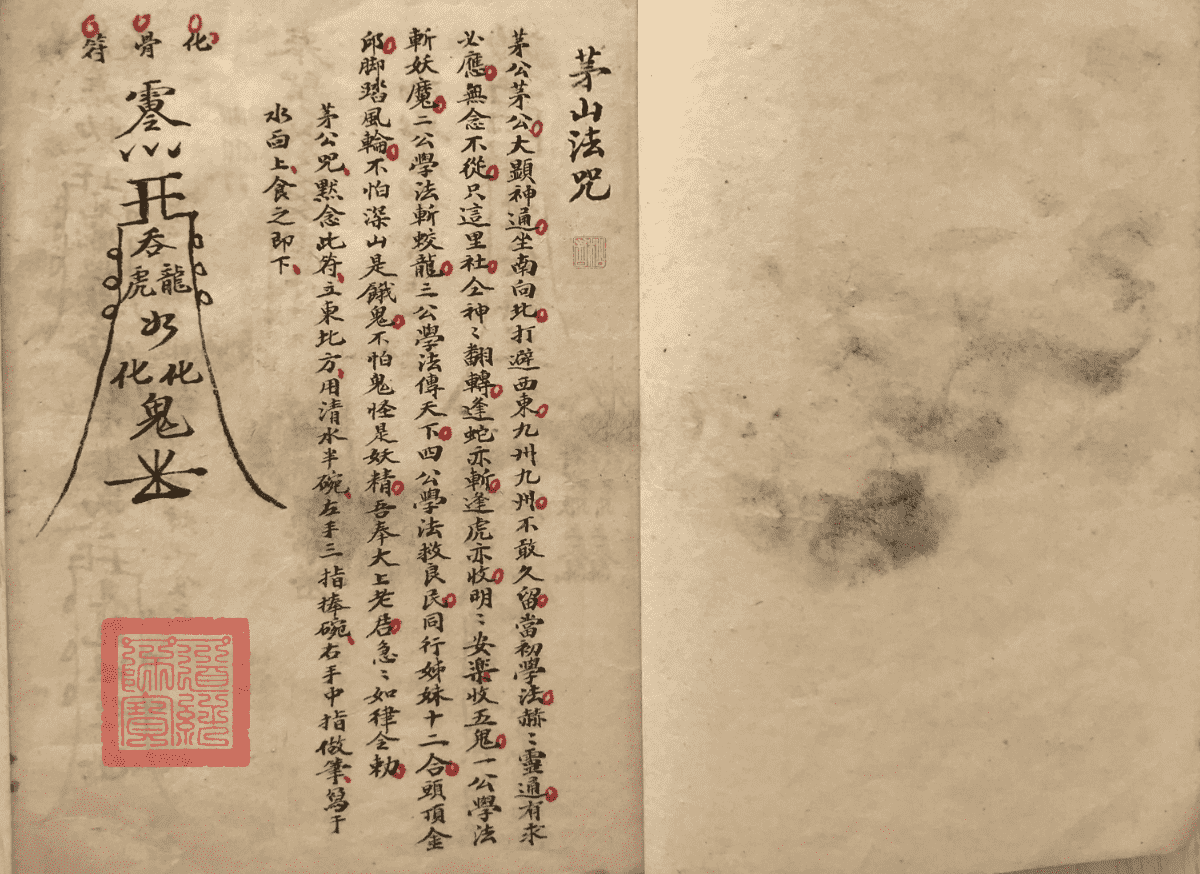 茅山法咒
茅公茅公大顯神通坐南向北打避西東九州九州不敢久留當初學法赫〻靈通有求
必應無念不從只這里社仝神〻翻轉逢蛇亦斬逢虎亦收明〻安樂收五鬼一公學法
斬妖魔二公學法斬蛟龍三公學法傳天下四公學法救良民同行姊妹十二合頭頂金
邱脚踏風輪不怕深山是餓鬼不怕鬼怪是妖精吾奉大上老君急〻如律令勅
茅公咒默念此符立東北方用清水半碗左手三指捧碗右手中指做筆寫于
水面上食之即下
化骨符
吞
龍虎
化化
鬼